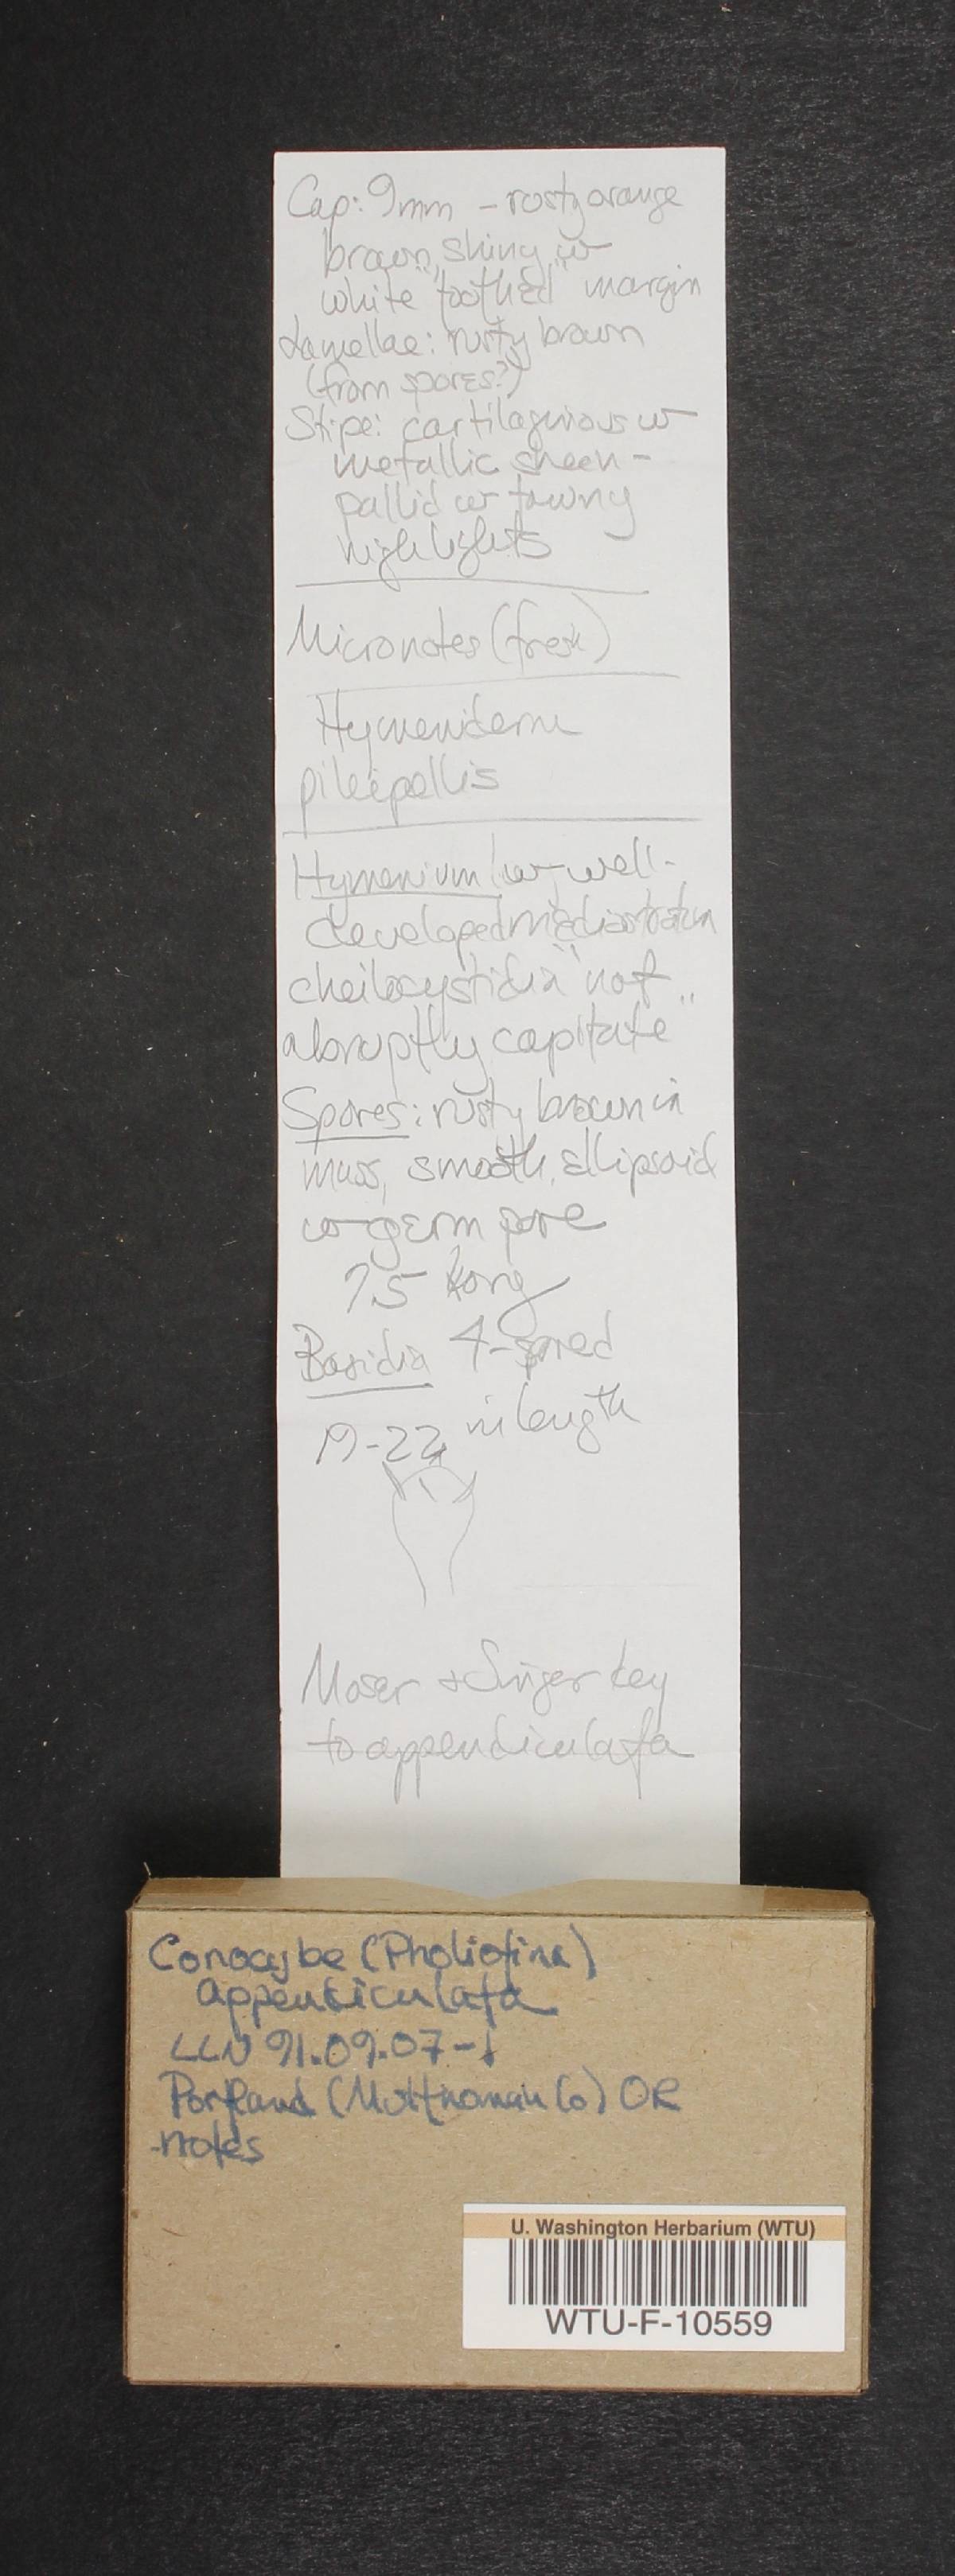 Cap: 9mm - rusty orange
brown, shiny w
white "toothed" margin
Lamellae: rusty brown
(from spores?)
Stipe: cartilaginous w
metallic sheen -
pallid w tawny
highlights
Micronotes (fresh)
Hymeniderm
pileipellis
Hymenium w well-
developed mediostratum
cheilocystidia "not
abruptly capitate"
Spores: rusty brown in
mass, smooth, ellipsoid
w germ pore
7.5 long
Basidia 4-spored
19-22 in length
Moser + Singer key
to appendiculata
Conocybe (Pholiotina)
appendiculata
LLN 91.09.07-1
Portland (Multnomah Co) OR
-notes
U. Washington Herbarium (WTU)
WTU-F-10559